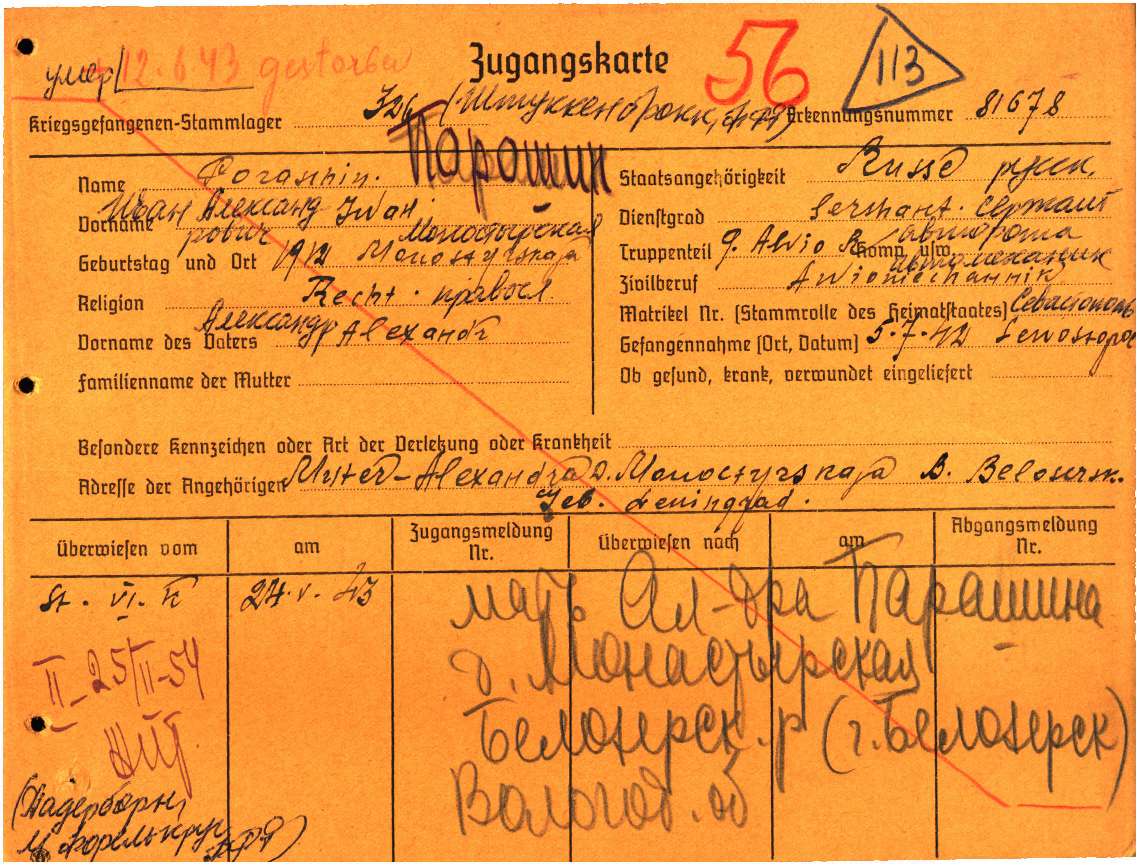 умер 12.6.43 gestorben
Zugangskarte
56
113
Kriegsgefangenen-Stammlager 326 (Штуккенброкк, Erkennungsnummer 81678
Парашин
Name Poraschin.
Staatsangehörigkeit Russe русск.
Иван Александ
рович
Vorname Iwan
Dienstgrad Sershant. Сержант
Монастырская
Geburtstag und Ort 1912 Monostyrskaja
Авторота
Truppenteil 9. Komp. usw.
Religion Recht. правосл.
Автомеханик
Zivilberuf
Александр
Vorname des Vaters Alexandr
Matrikel Nr. (Stammrolle des Heimatstaates) Севастополь
Gefangennahme (Ort, Datum) 5.7.42
Familienname der Mutter
Ob gesund, krank, verwundet eingeliefert
Besondere Kennzeichen oder Art der Verletzung oder Krankheit
Adresse der Angehörigen Muter-Alexandra D. Monoctyrskaja B. Belosersk.
Geb. Leningrad.
Überwiesen vom am Zugangsmeldung Nr. Überwiesen nach am Abgangsmeldung Nr.
St. VI. K 24.V.43
мать Ал-дра Парашина
д. Монастырская
II-25/II-54
Белозерск. р (г. Белозерск)
Вологод. об
(Падерборн,